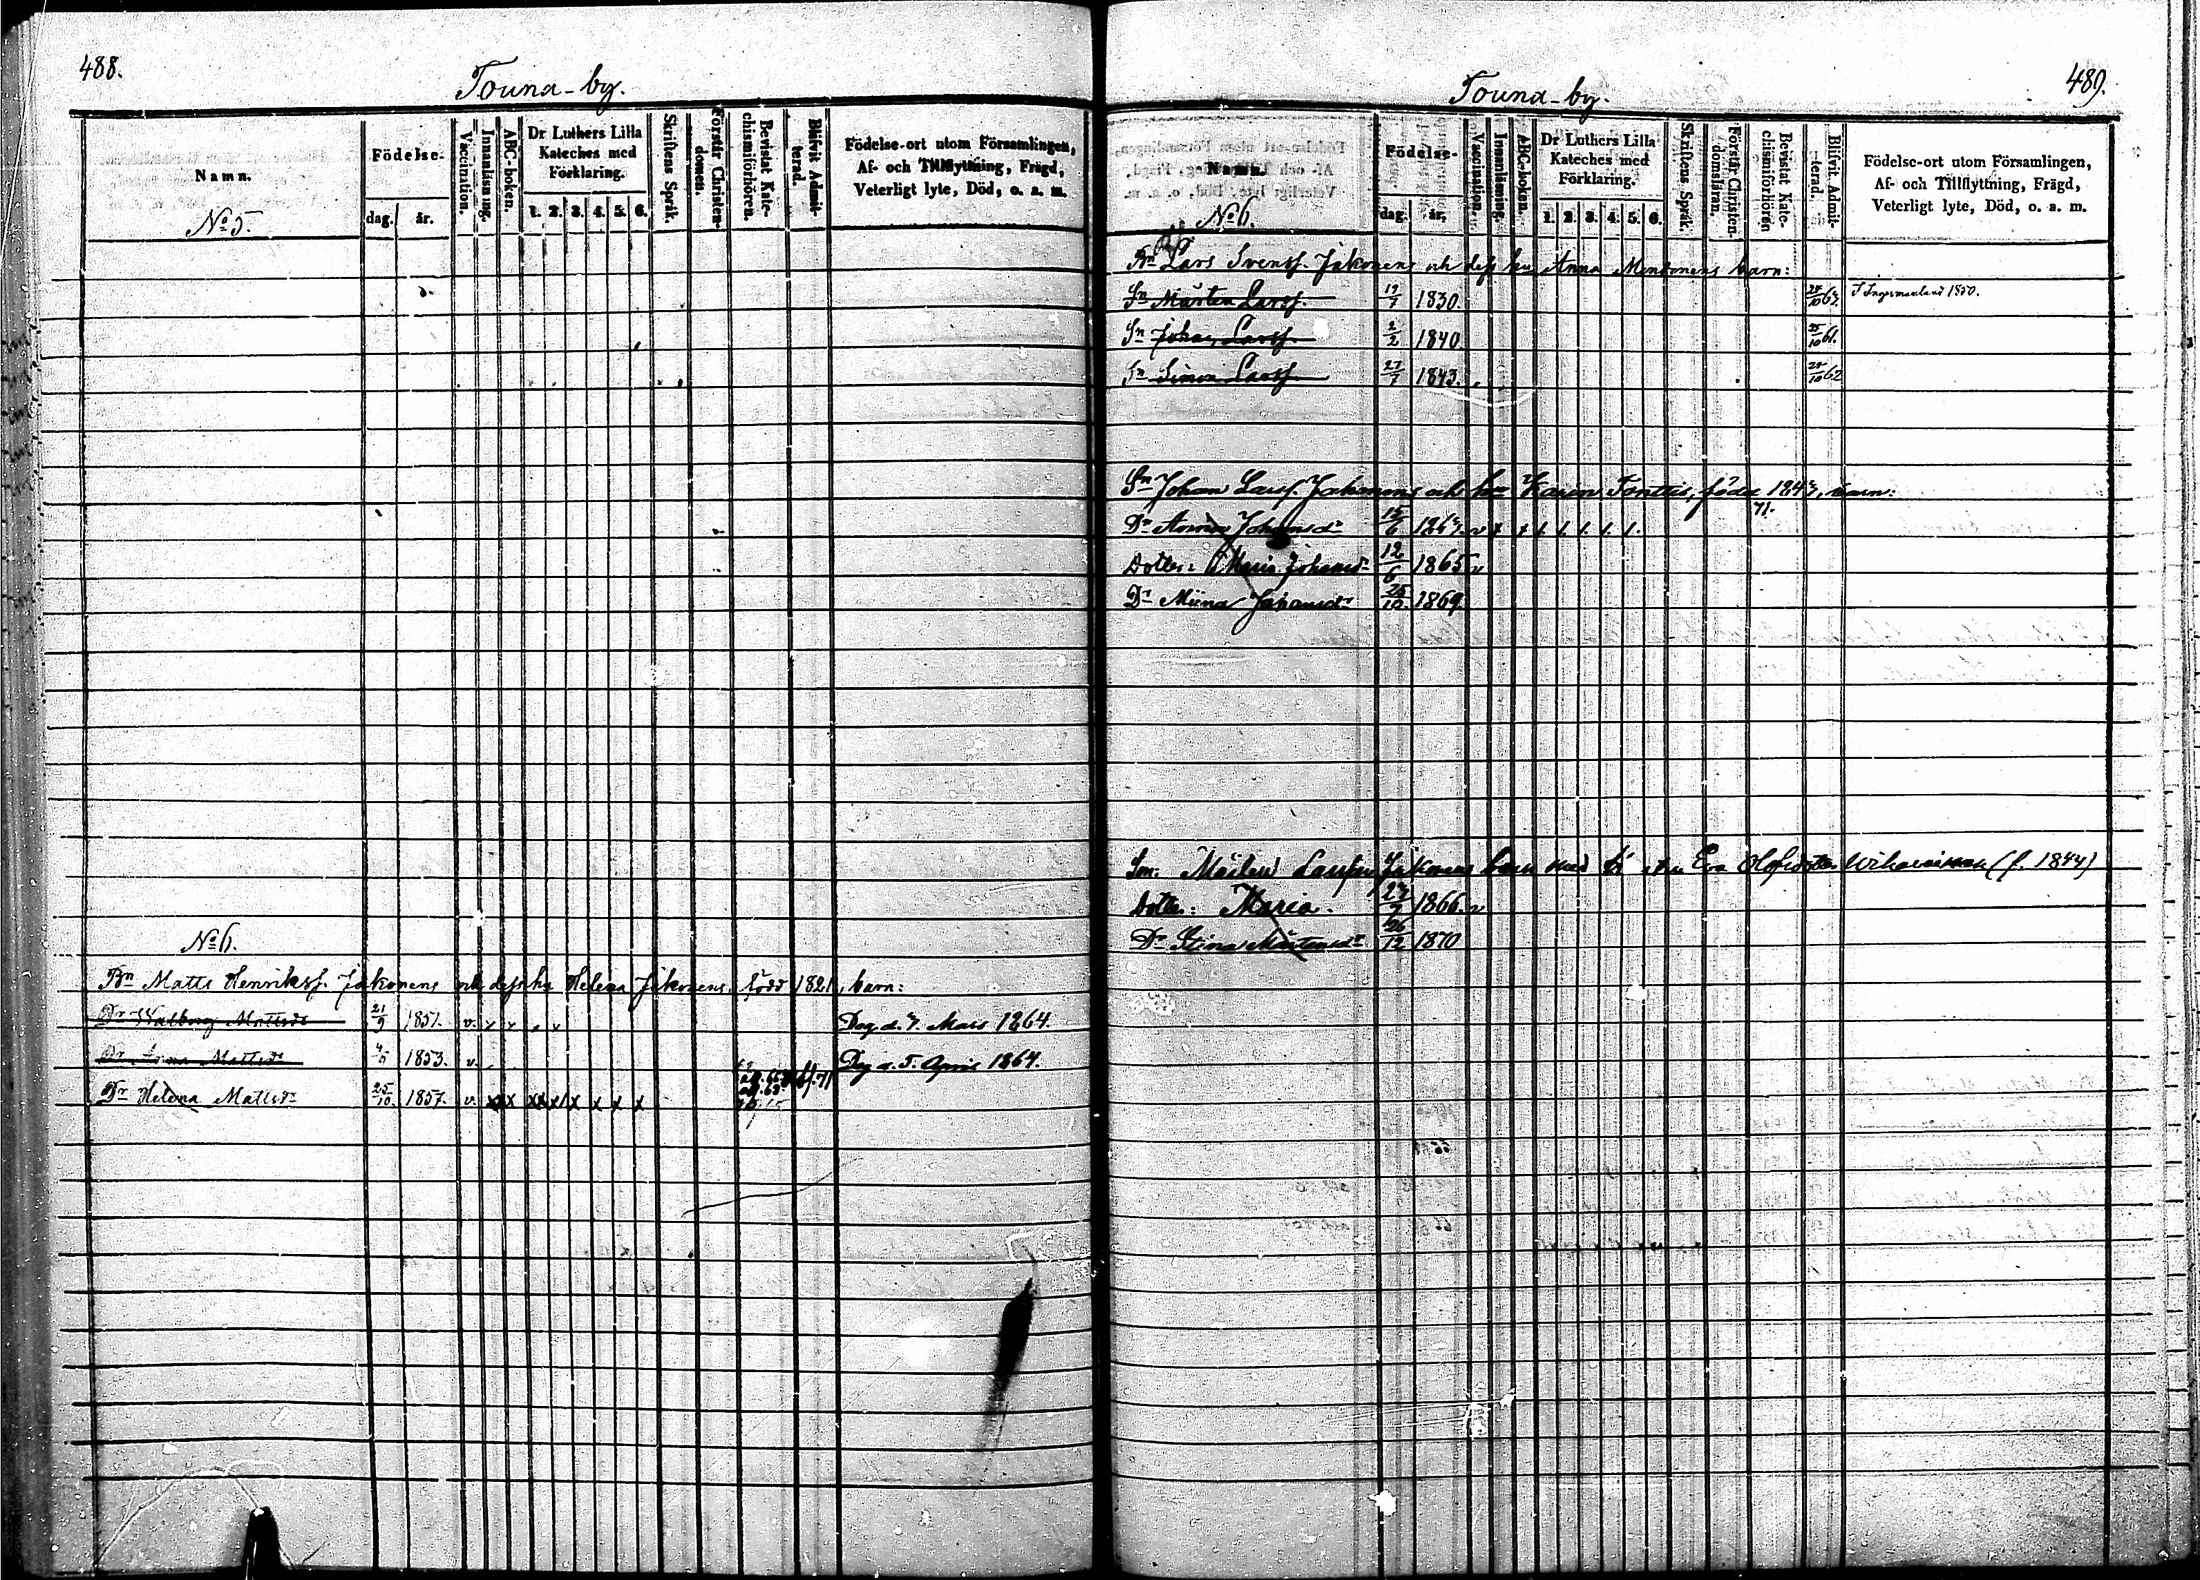 488.
Touna-by.
Namn.
No 5.
Födelse-
dag. år.
Vaccination.
Innanläsning.
ABC-boken.
Dr Luthers Lilla
Kateches med
Förklaring.
1. 2. 3. 4. 5. 6.
Skriftens Språk.
Förstår Christen-
domen.
Bevistat Kate-
chismiförhören.
Blifvit Admit-
terad.
Födelse-ort utom Församlingen,
Af- och Tillflyttning, Frägd,
Veterligt lyte, Död, o. s. m.
No 6.
Bn Matts Henrikss. Jakonens och dess hu Helena Jakonens, född 1821, barn:
Dr Walborg Mattsdr 21/9 1851. v. Dog d. 7. Mars 1864.
Dr Anna Mattsdr 4/5 1853. v. Dog d. 5. April 1864.
Dr Helena Mattsdr 25/10. 1857. v. x x x x x x x x
489.
Touna-by.
Namn.
No 6.
Födelse-
dag. år.
Vaccination.
Innanläsning.
ABC-boken.
Dr Luthers Lilla
Kateches med
Förklaring.
1. 2. 3. 4. 5. 6.
Skriftens Språk.
Förstår Christen-
domsläran.
Bevistat Kate-
chismiförhören
Blifvit Admit-
terad.
Födelse-ort utom Församlingen,
Af- och Tillflyttning, Frägd,
Veterligt lyte, Död, o. s. m.
Bn Lars Svenss. Jakonens och dess hu Anna Mendonens barn:
Sn Mårten Larss. 19/7 1830. I Ingermanland 1850.
Sn Johan Larss. 2/2 1840 25/10 61.
Sn Simon Larss. 27/7 1843. 25/10 62
Sn Johan Larss. Jakonens och hu Karin Tonttis, född 1847, barn:
71.
Dr Anna Johansdr 15/6 1867. v x x 1. 1. 1. 1. 1.
Dotter: Maria Johansdr 12/6 1865 v
Dr Miina Johansdr 25/10. 1869.
Son: Mårten Larsson Jakonens barn med Eva Olofsdotter (f. 1844)
Dotter: Maria. 1866. v
Dr Stina Mårtensdr 26/12 1870